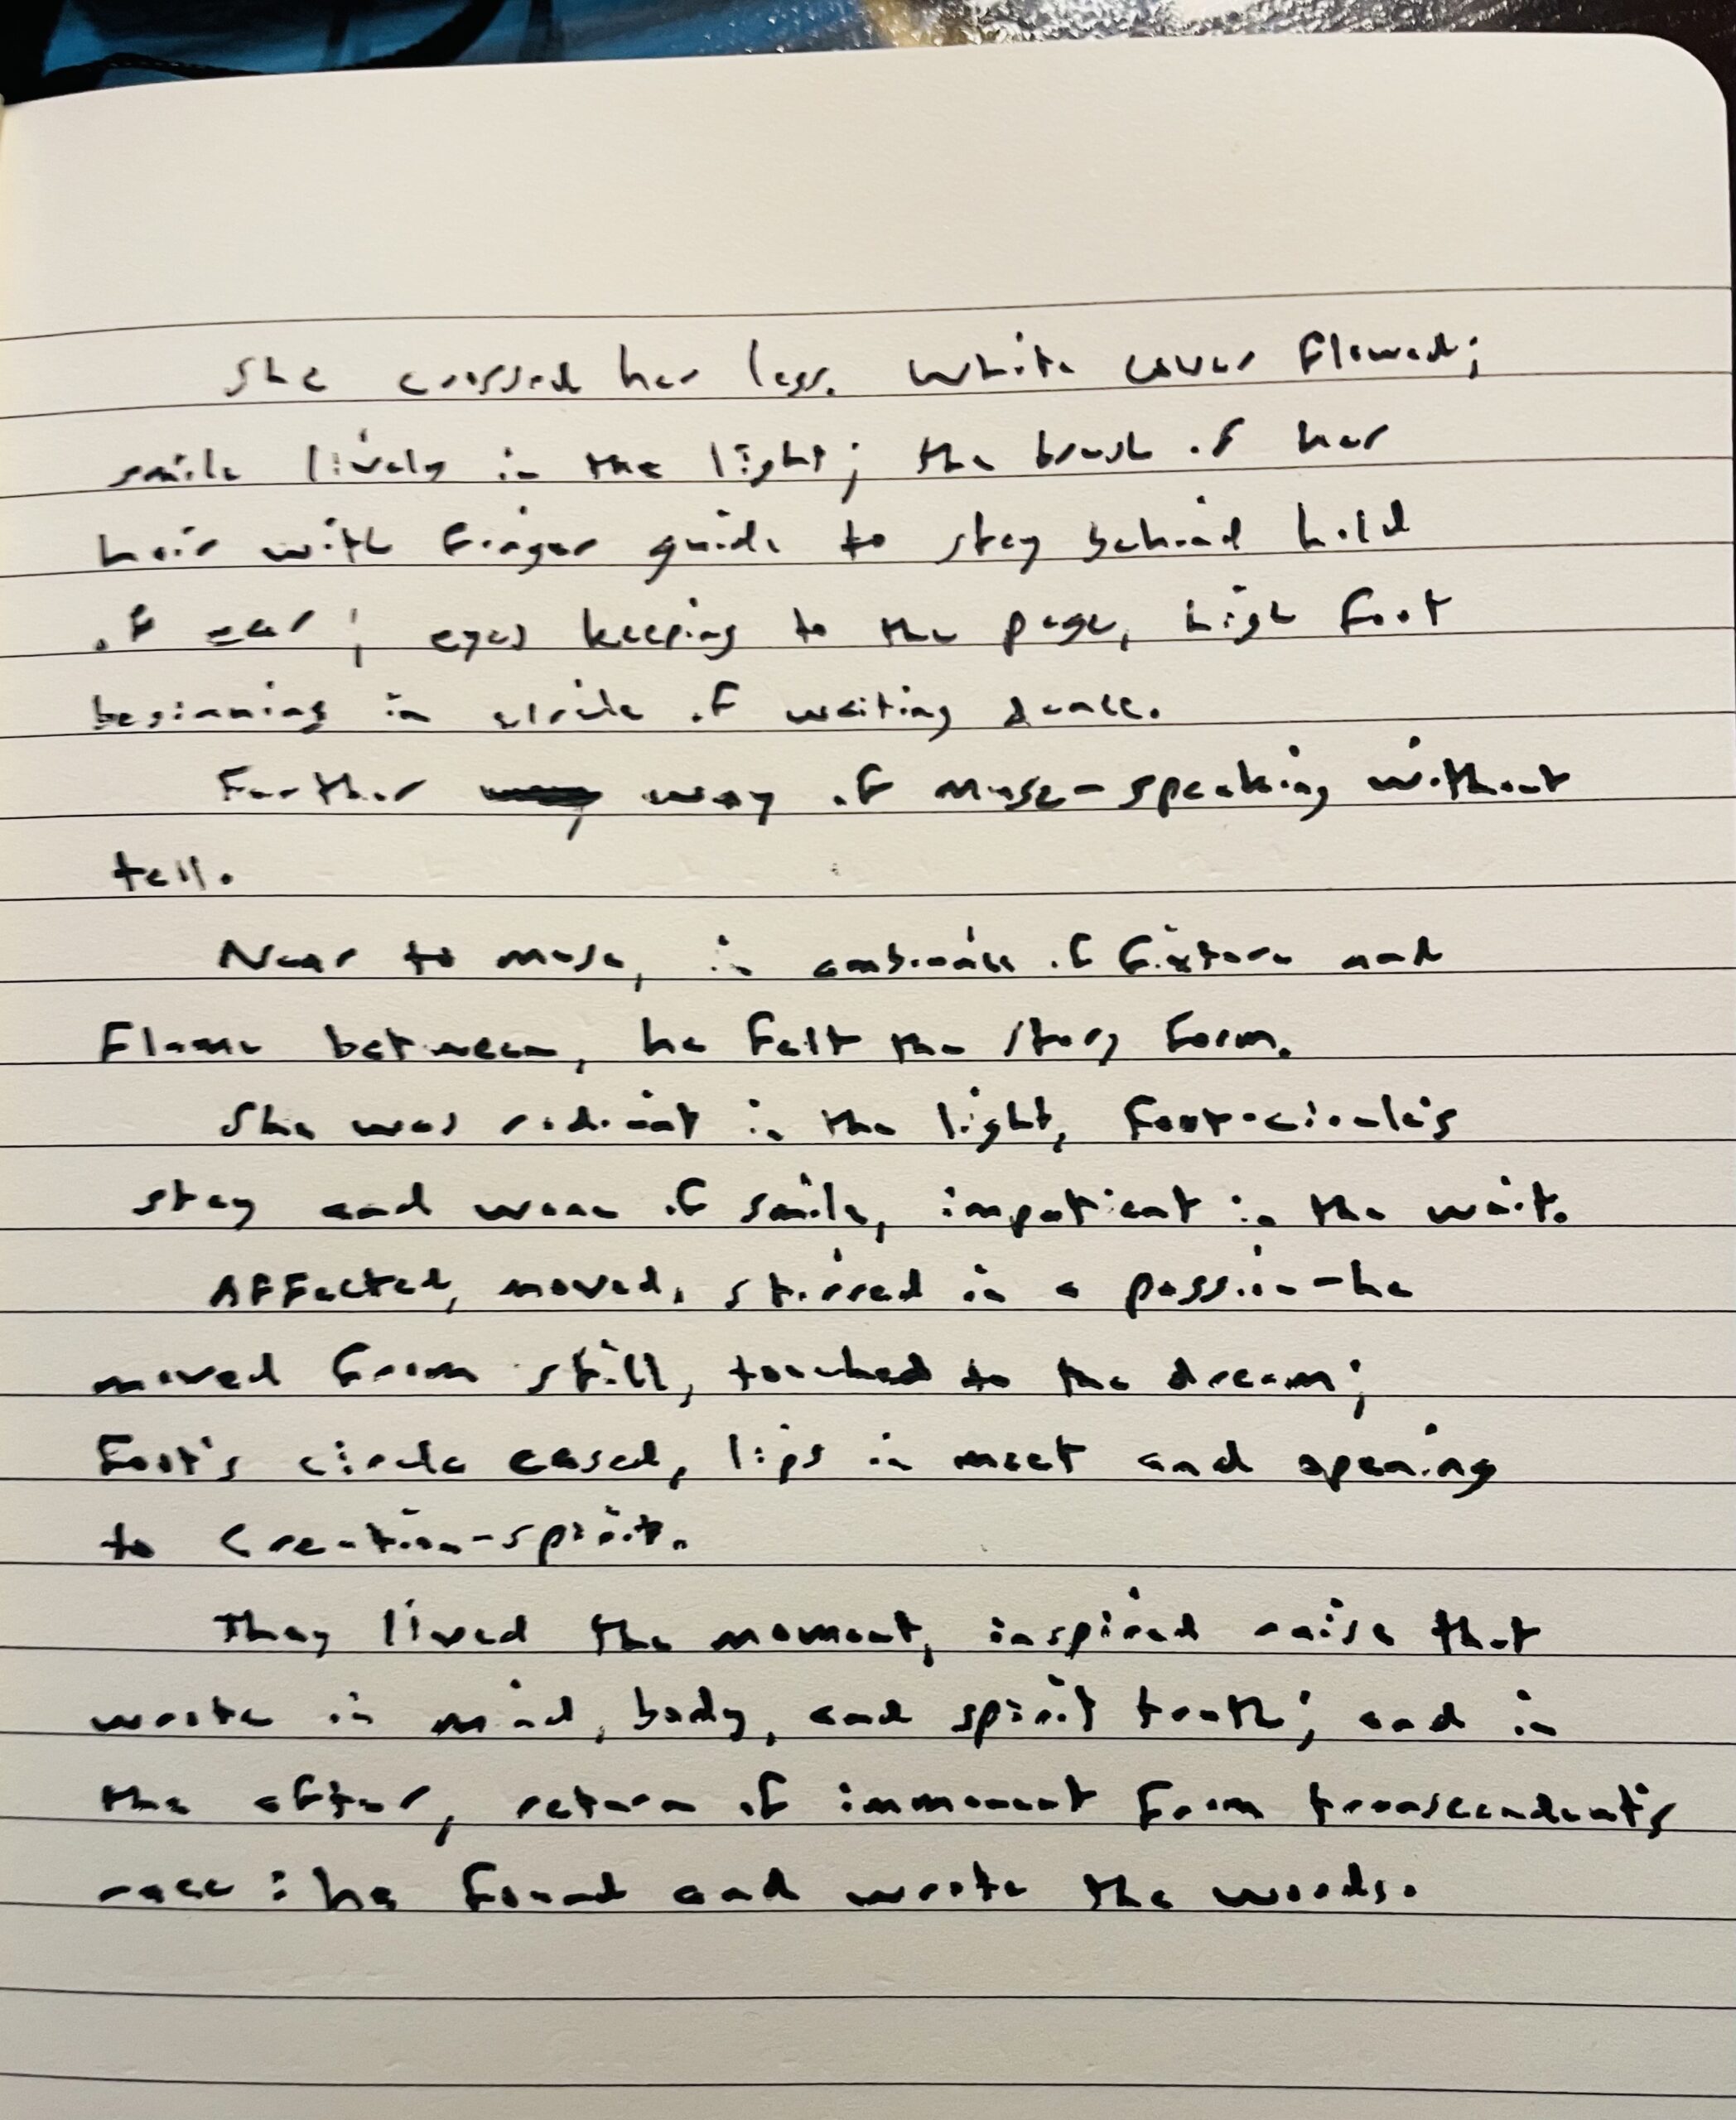 She crossed her legs. White cover flowed;
smile lively in the light; the brush of her
hair with finger guide to stay behind hold
of ear; eyes keeping to the page, high foot
beginning in circle of waiting dance.
Further way of muse-speaking without
tell.
Near to muse, in ambiance of fixture and
flame between, he felt the story form.
She was radiant in the light, foot-circle's
stay and wane of smile, impatient in the wait.
Affected, moved, stirred in a passion-he
moved from still, touched to the dream;
foot's circle eased, lips in meet and opening
to creation-spirit.
They lived the moment, inspired raise that
wrote in mind, body, and spirit truth; and in
the after, return of immanent from transcendent's
race: he found and wrote the words.